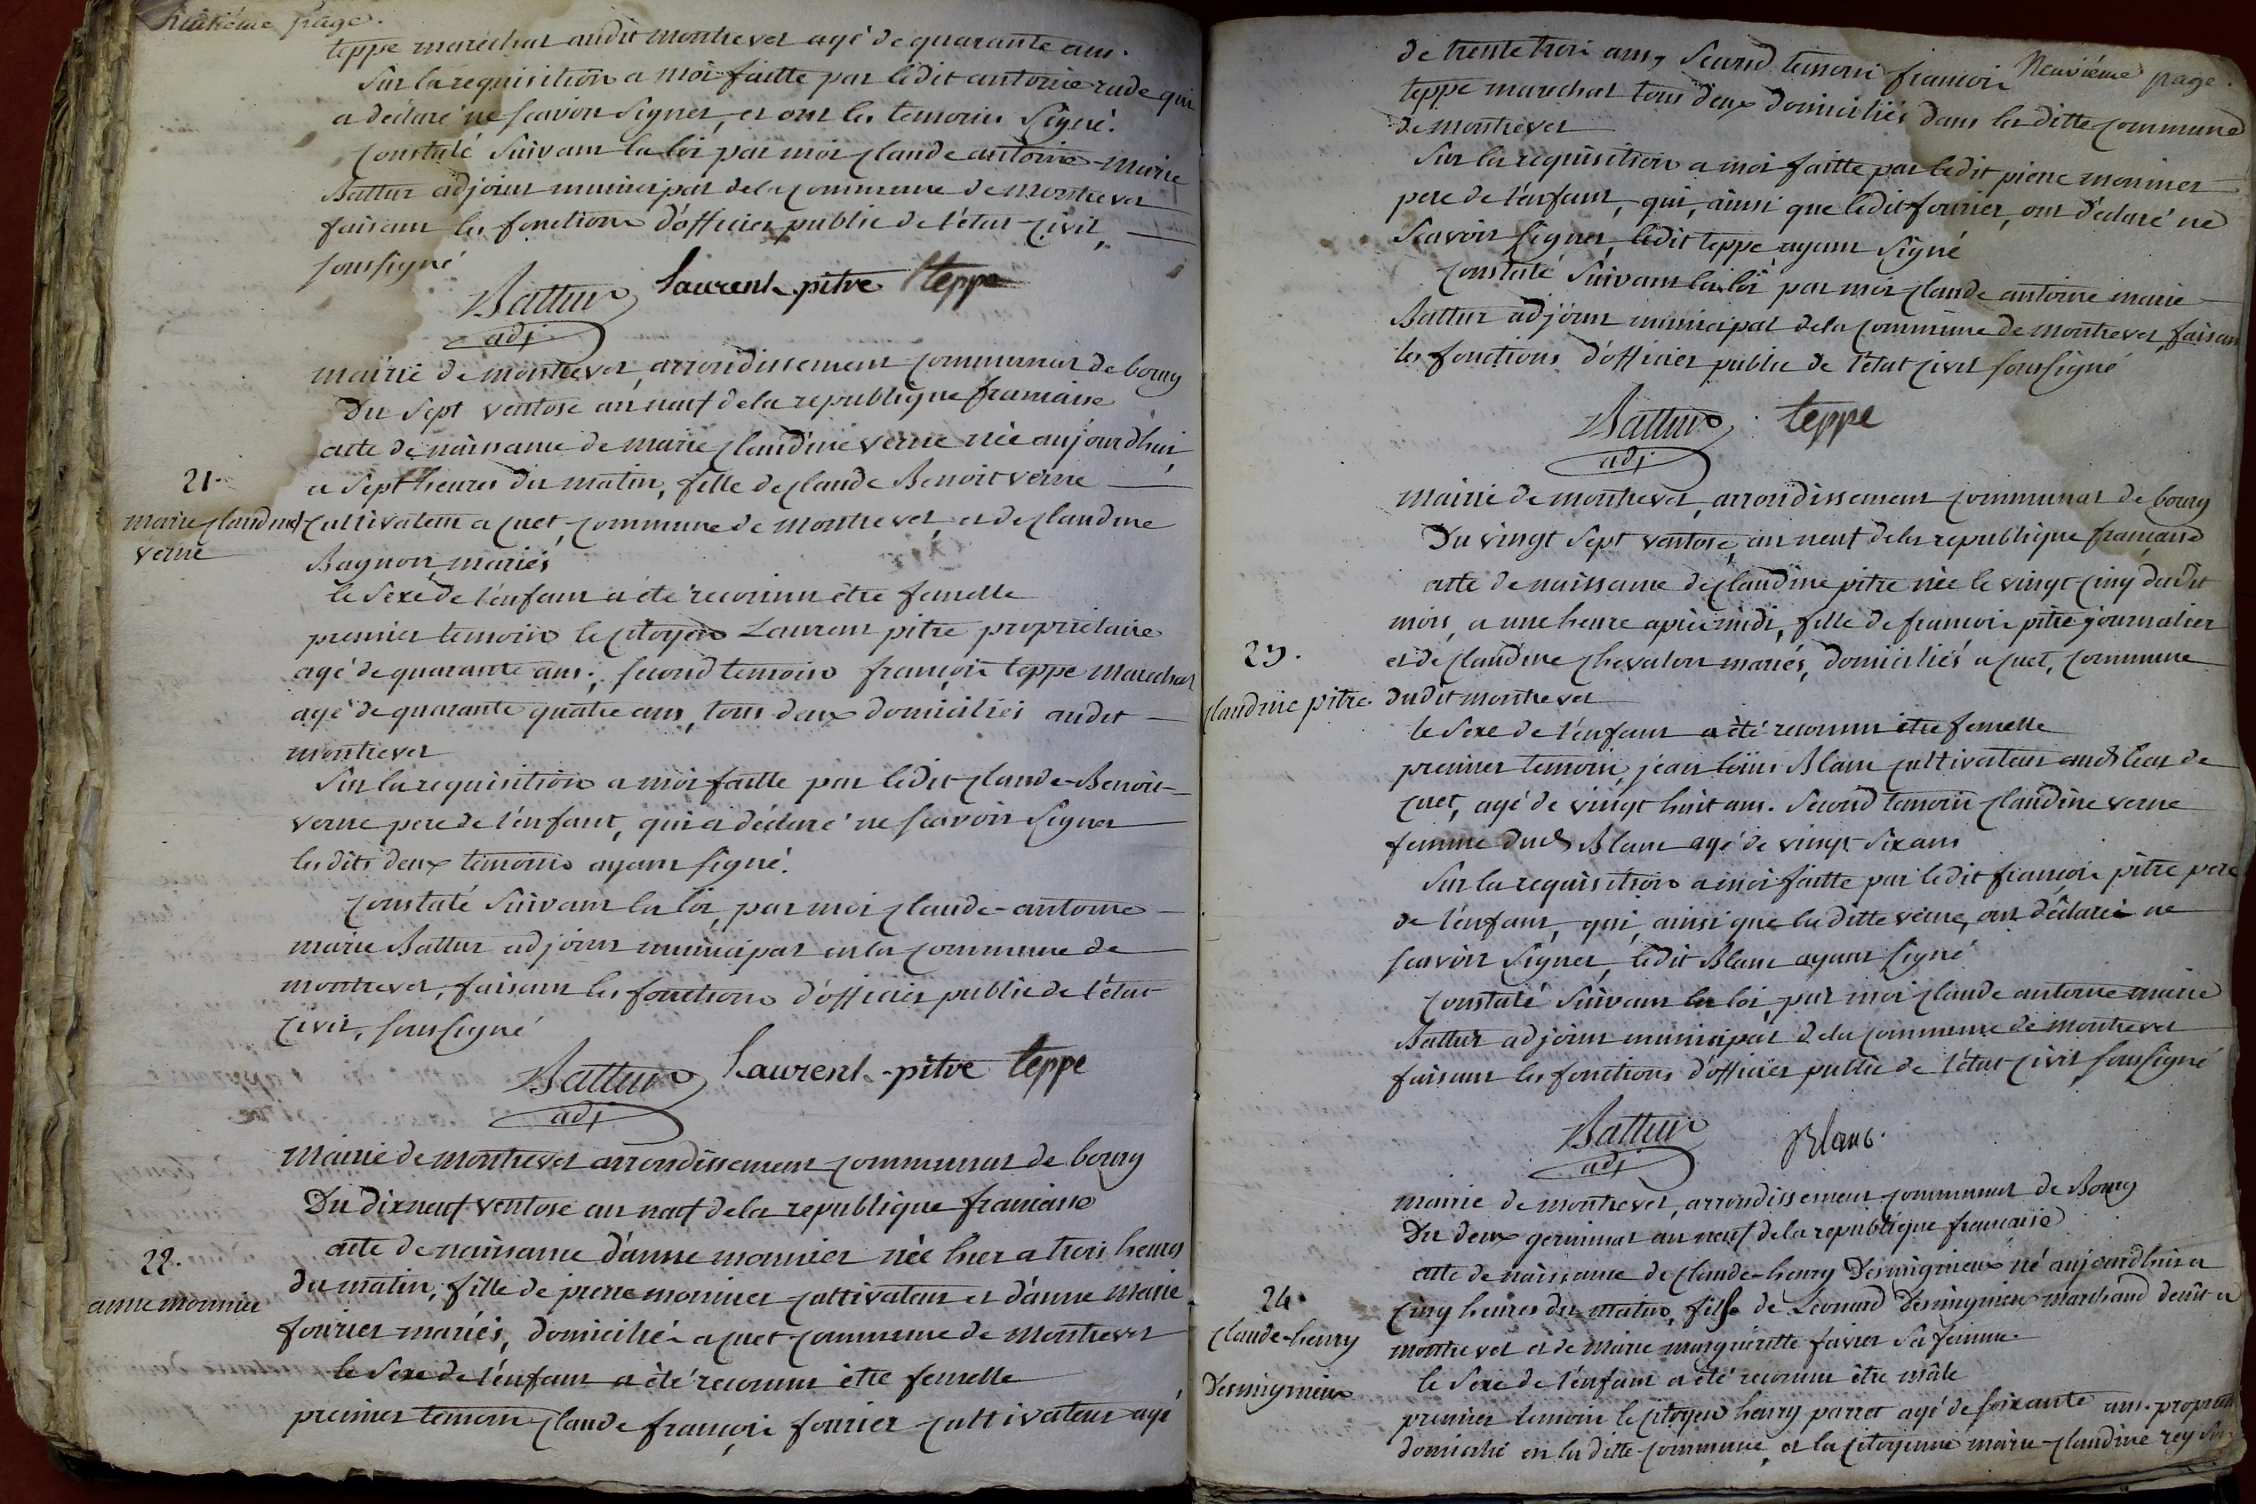 huitiéme page.
teppe maréchal audit montrevel agé de quarante ans.
Sur la requisition a moi faitte par ledit antoine rude qui
a déclaré ne scavoir signer, et ont les temoins signé.
Constaté suivant la loi par moi Claude antoine-marie
Battur adjoint municipal de la Commune de montrevel
faisant les fonctions d'officier public de l'état Civil,
soussigné
Battur Laurent pitre teppe
adj
mairie de montrevel, arrondissement Communal de bourg
Du sept ventose an neuf de la republique francaise
acte de naissance de marie Claudine verne née aujourdhui,
21.
a sept heures du matin, fille de Claude Benoit verne
marie Claudine
verne
Cultivateur a Cuet, Commune de montrevel, et de Claudine
Bagnon mariés
le sexe de l'enfant a été reconnu être femelle
premier temoin le Citoyen Laurent pitre proprietaire
agé de quarante ans; second temoin françois teppe marechal
agé de quarante quatre ans, tous deux domiciliés audit
montrevel
Sur la requisition a moi faitte par ledit Claude-Benoit
verne pere de l'enfant, qui a déclaré ne scavoir signer
les dits deux temoins ayant signé.
Constaté suivant la loi, par moi Claude-antoine
marie Battur adjoint municipal en la Commune de
montrevel, faisant les fonctions d'officier public de l'état
Civil, soussigné
Battur Laurent-pitre teppe
adj
mairie de montrevel arrondissement Communal de bourg
Du dixneuf ventose an neuf de la republique francaise
acte de naissance d'anne monnier née hier a trois heures
22.
anne monnier
du matin, fille de pierre monnier Cultivateur et d'anne marie
fourier mariés, domiciliés a Cuet Commune de montrevel
le sexe de l'enfant a été reconnu être femelle
premier temoin Claude françois fourier Cultivateur agé
Neuviéme page.
de trente trois ans, second temoin francois
teppe marechal tous deux domiciliés dans laditte Commune
de montrevel
Sur la requisition a moi faitte par ledit pierre monnier
pere de l'enfant, qui, ainsi que ledit fourier, ont déclaré ne
scavoir signer, ledit teppe ayant signé
Constaté suivant la loi par moi Claude antoine marie
Battur adjoint municipal de la Commune de montrevel faisant
les fonctions d'officier public de l'état Civil soussigné
Battur teppe
adj
mairie de montrevel, arrondissement Communal de bourg
Du vingt sept ventose, an neuf de la republique francaise
acte de naissance de Claudine pitre née le vingt Cinq dudit
mois, a une heure après midi, fille de francois pitre journalier
23.
Claudine pitre
et de Claudine Chevalon mariés, domiciliés a Cuet, Commune
dudit montrevel
le sexe de l'enfant a été reconnu être femelle
premier temoin jean loüis Blanc Cultivateur aud. lieu de
Cuet, agé de vingt huit ans. Second temoin Claudine verne
femme dud. Blanc agé de vingt six ans
Sur la requisition a moi faitte par ledit françois pitre pere
de l'enfant, qui, ainsi que la ditte verne, ont déclaré ne
scavoir signer, ledit Blanc ayant signé
Constaté suivant la loi, par moi Claude antoine marie
Battur adjoint municipal de la Commune de montrevel
faisant les fonctions d'officier public de l'état Civil soussigné
Battur Blanc.
adj
mairie de montrevel, arrondissement Communal de Bourg
Du deux germinal an neuf de la republique francaise
acte de naissance de Claude-henry Desmigneux né aujourdhui a
24.
Claude-henry
Desmigneux
Cinq heures du matin, fils de Leonard Desmigneux marchand a
montrevel et de marie marguéritte favier sa femme.
le sexe de l'enfant a été reconnu être mâle
premier temoin le Citoyen henry parret agé de soixante ans
domicilié en la ditte Commune, et la Citoyenne marie-Claudine rey